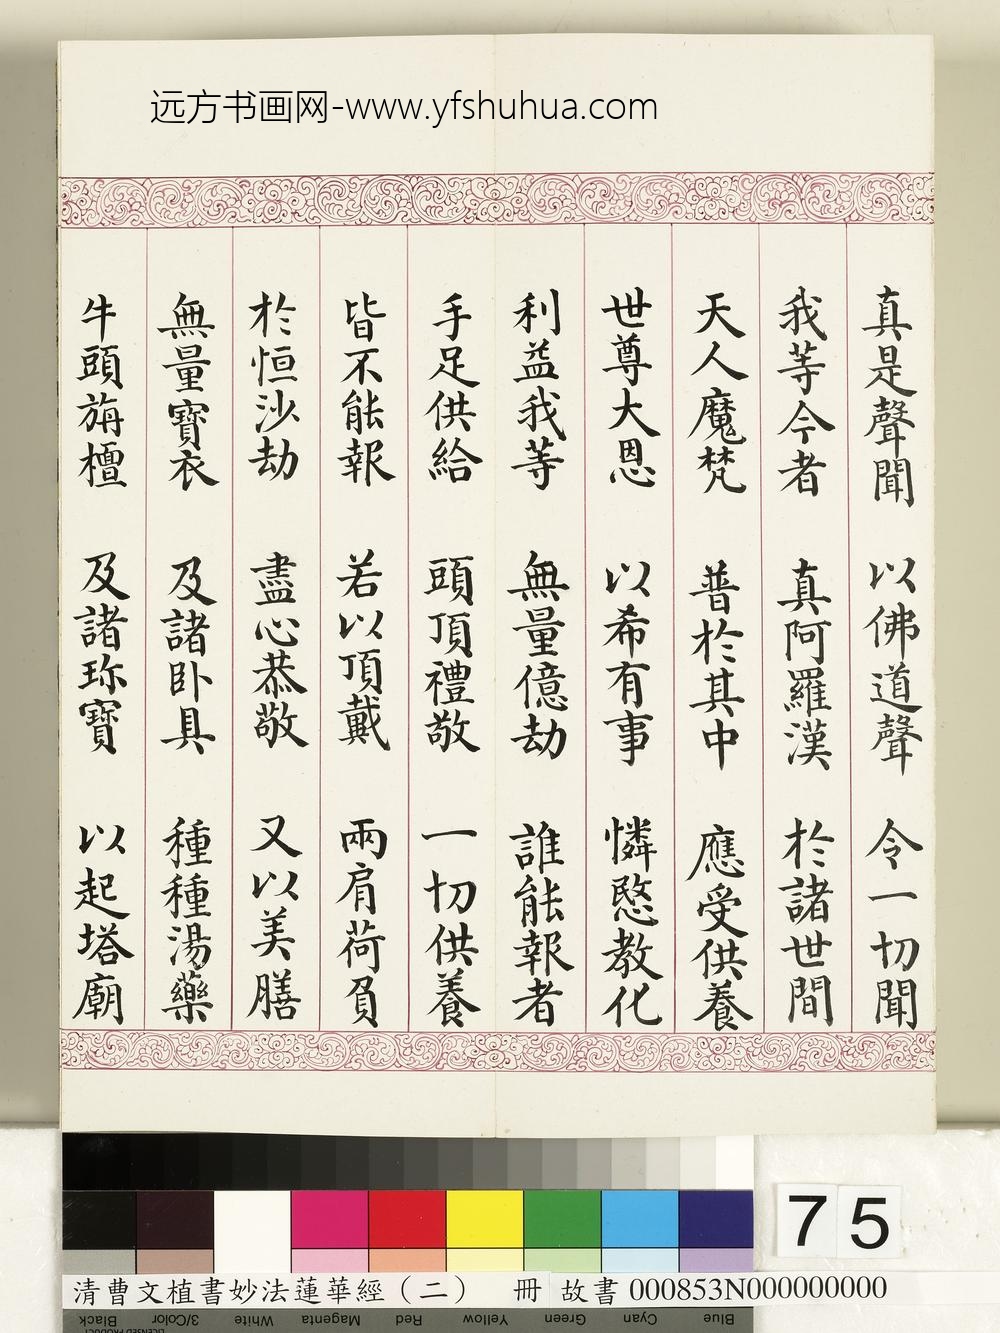 远方书画网-www.yfshuhua.com
真是聲聞 以佛道聲 令一切聞
我等今者 真阿羅漢 於諸世間
天人魔梵 普於其中 應受供養
世尊大恩 以希有事 憐愍教化
利益我等 無量億劫 誰能報者
手足供給 頭頂禮敬 一切供養
皆不能報 若以頂戴 兩肩荷負
於恒沙劫 盡心恭敬 又以美膳
無量寶衣 及諸卧具 種種湯藥
牛頭旃檀 及諸珎寶 以起塔廟
75
清曹文植書妙法蓮華經（二） 冊 故書 000853N000000000
Black 3/Color White Magenta Red Yellow Green Cyan Blue